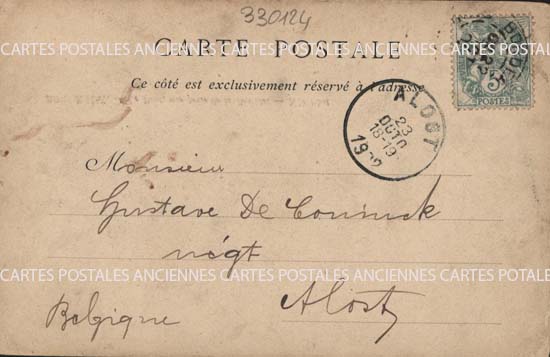 330124
ANCIENNES CARTES POSTALES ANCIENNES CARTES POSTALES ANCIENNES CARTES
CARTE POSTALE
Ce côté est exclusivement réservé à l'adresse
POSTES
ALOST
23
OCTO
18-19
Monsieur
Gustave De Coninck
négt
CARTES POSTALES ANCIENNES CARTES POSTALES ANCIENNES CARTES POSTALES
Alost
Belgique